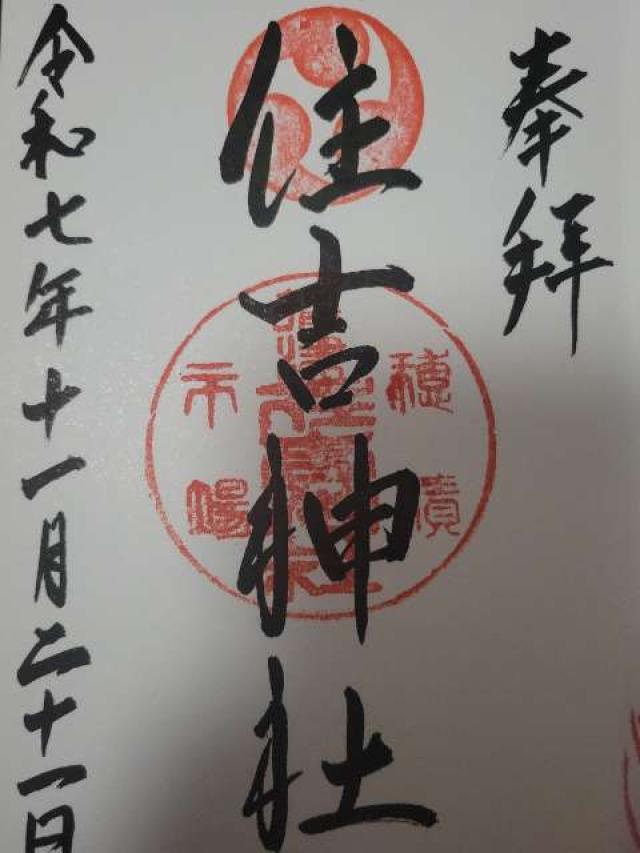 奉拝
住吉神社
令和七年十一月二十一日
穂積